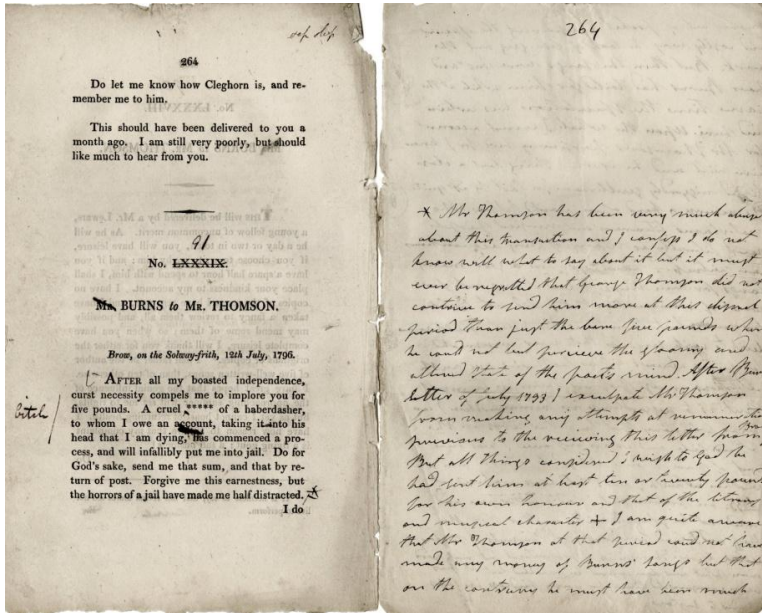 264
Do let me know how Cleghorn is, and re-
member me to him.
This should have been delivered to you a
month ago. I am still very poorly, but should
like much to hear from you.
91
No. LXXXIX.
Mr. BURNS to Mr. THOMSON.
Brow, on the Solway-frith, 12th July, 1796.
AFTER all my boasted independence,
curst necessity compels me to implore you for
five pounds. A cruel ***** of a haberdasher,
bitch/
to whom I owe an account, taking it into his
head that I am dying, has commenced a pro-
cess, and will infallibly put me into jail. Do for
God's sake, send me that sum, and that by re-
turn of post. Forgive me this earnestness, but
the horrors of a jail have made me half distracted.
I do
264
Mr Thomson has been very much abus
about this transaction and I confess I do not
know well what to say about it but it must
ever be regretted that George Thomson did not
contrive to send him more at this dismal
period than just the bare five pounds when
he could not but percieve the gloomy and
altered state of the poets mind. After Bur
letter of July 1793 I exculpate Mr Thomson
from making any attempts at remuneration
previous to the recieving this letter from
But all things considered I wish to God he
had sent him at least ten or twenty pound
for his own honour and that of the literary
and musical character + I am quite aware
that Mr Thomson at that period could not have
made any money of Burns' songs but that
on the contrary he must have been much